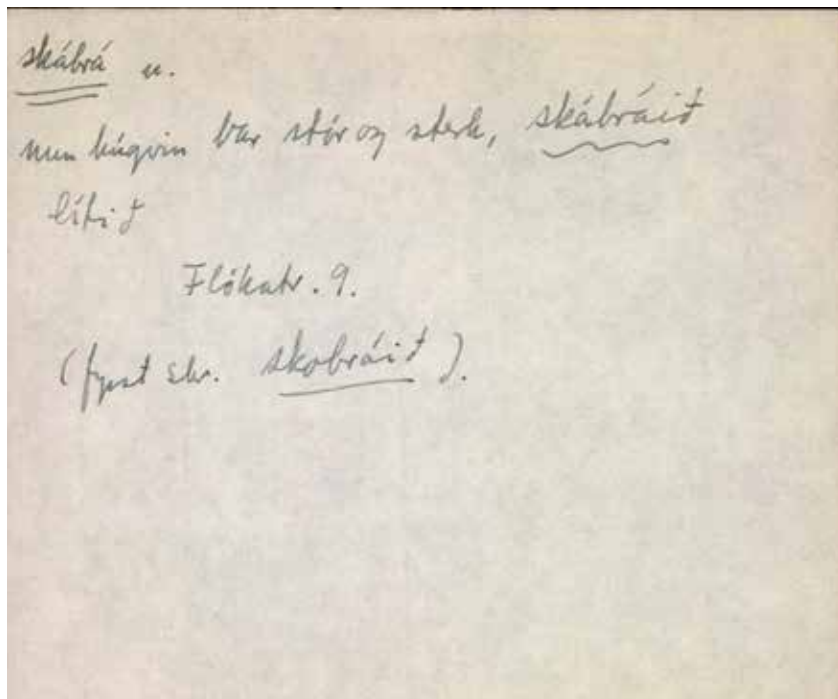 skábrá n.
men húgvin var stór og sterk, skábráið
lítið
Flókatr. 9.
(fyrst skr. skobráið).